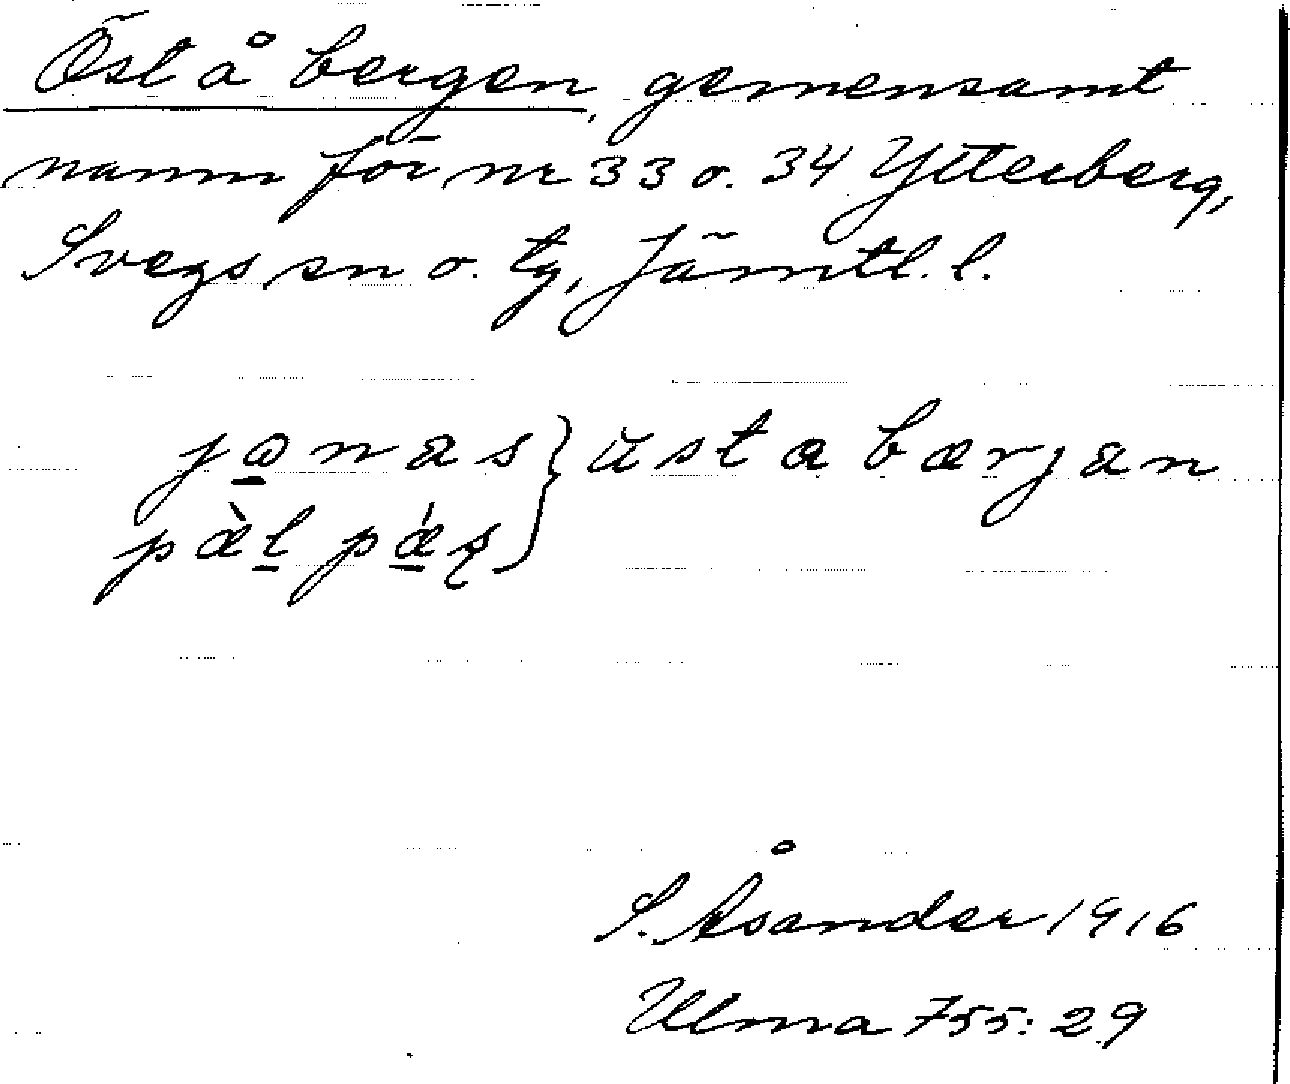 Öst å bergen, gemensamt
namn för nr 33 o. 34 Ytterberg,
Svegs sn o. tg, Jämtl. l.
jo̲nas } üstabærjan
pæ̀l̲ pǽ̲ʂ
S. Åsander 1916
Ulma 755:29